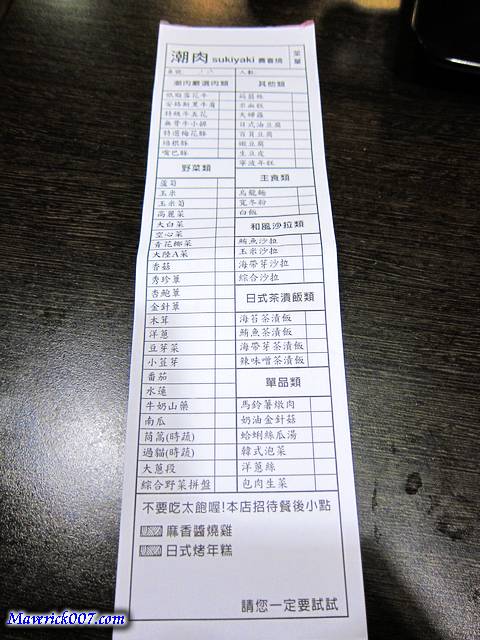 潮肉 sukiyaki 壽喜燒 菜單
桌號: 人數:
潮肉嚴選肉類
低脂雪花牛
安格斯黑牛肩
特級牛五花
無骨牛小排
特選梅花豚
培根豚
嘴巴豚
野菜類
蘆筍
玉米
玉米筍
高麗菜
大白菜
空心菜
青花椰菜
大陸A菜
香菇
秀珍蕈
杏鮑蕈
金針蕈
木耳
洋蔥
豆芽菜
小荳芽
番茄
水蓮
牛奶山藥
南瓜
茼蒿(時蔬)
過貓(時蔬)
大蔥段
綜合野菜拼盤
其他類
蒟蒻絲
米血糕
大燔麩
日式油豆腐
百頁豆腐
嫩豆腐
生豆皮
寧波年糕
主食類
烏龍麵
寬冬粉
白飯
和風沙拉類
鮪魚沙拉
玉米沙拉
海帶芽沙拉
綜合沙拉
日式茶漬飯類
海苔茶漬飯
鮪魚茶漬飯
海帶芽茶漬飯
辣味噌茶漬飯
單品類
馬鈴薯燉肉
奶油金針菇
蛤蜊絲瓜湯
韓式泡菜
洋蔥絲
包肉生菜
不要吃太飽喔!本店招待餐後小點
麻香醬燒雞
日式烤年糕
請您一定要試試
Maverick007.com